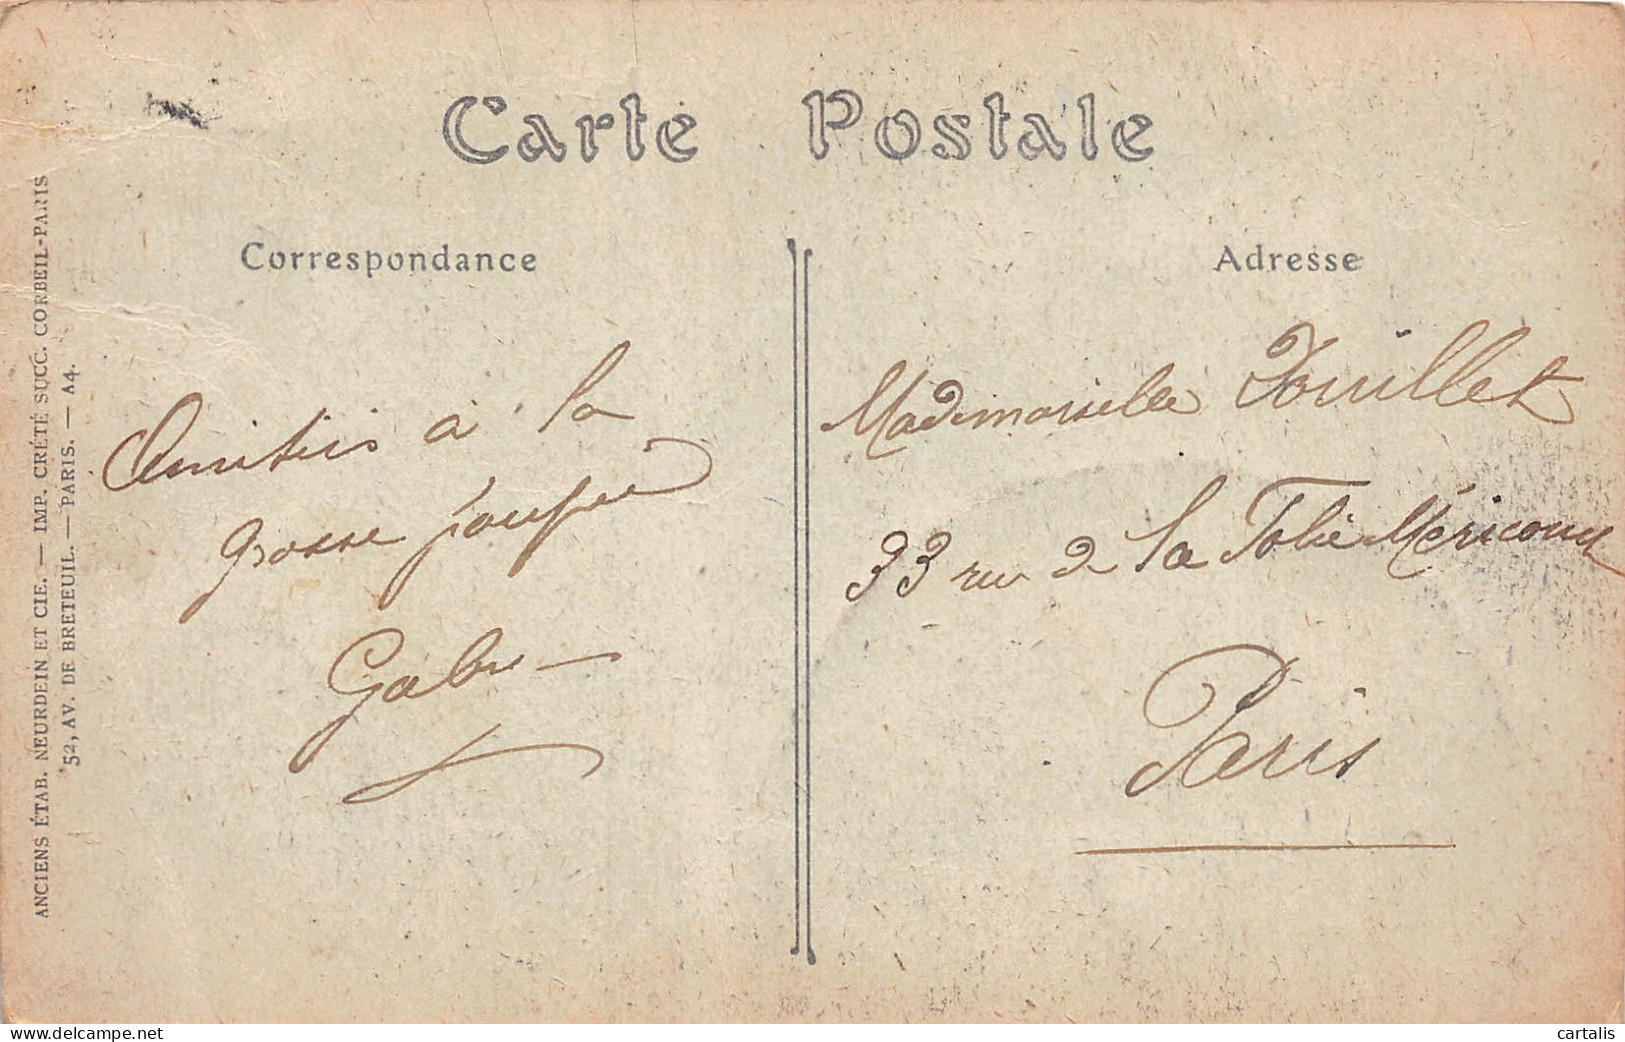 Carte Postale
Correspondance
Adresse
ANCIENS ÉTAB. NEURDEIN ET CIE. — IMP. CRÉTÉ SUCC. CORBEIL-PARIS
52, AV. DE BRETEUIL. — PARIS. — A4.
Amitiés à la
grosse poupée
Gaby
Mademoiselle Fouillet
33 rue de la Folie Méricourt
Paris
delcampe.net
cartalis